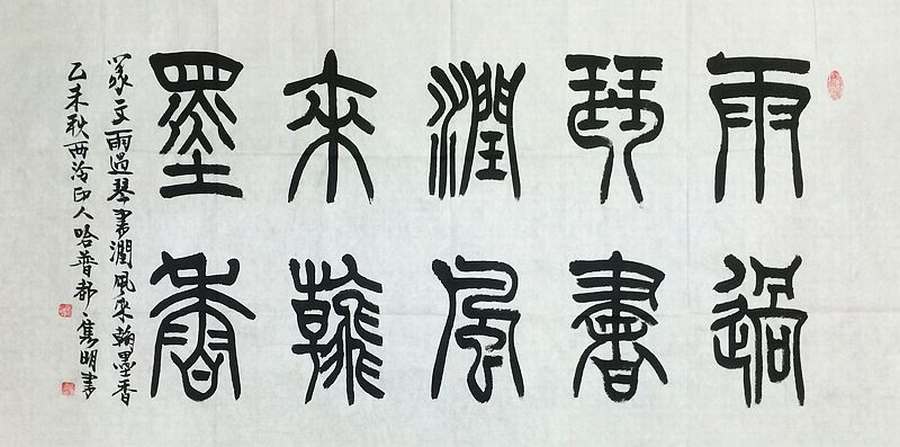 雨過
琴書
潤風
來翰
墨香
篆文雨過琴書潤風來翰墨香
乙未秋西泠印人哈普都·隽明書